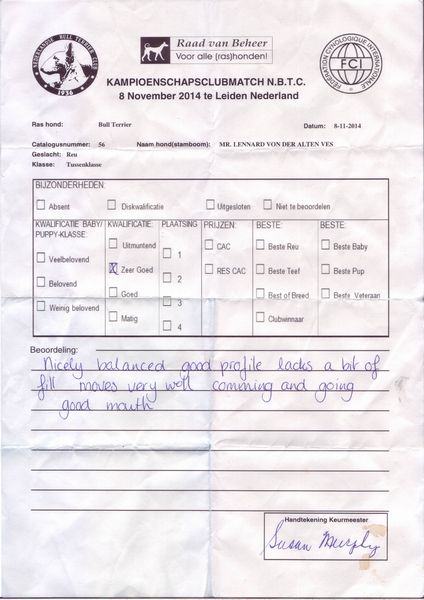 NEDERLANDSE BULL TERRIER CLUB
1936
Raad van Beheer
Voor alle (ras)honden!
FEDERATION CYNOLOGIQUE INTERNATIONALE
FCI
KAMPIOENSCHAPSCLUBMATCH N.B.T.C.
8 November 2014 te Leiden Nederland
Ras hond: Bull Terrier Datum: 8-11-2014
Catalogusnummer: 56 Naam hond(stamboom): MR. LENNARD VON DER ALTEN VES
Geslacht: Reu
Klasse: Tussenklasse
BIJZONDERHEDEN:
Absent Diskwalificatie Uitgesloten Niet te beoordelen
KWALIFICATIE BABY/ PUPPY-KLASSE:
Veelbelovend
Belovend
Weinig belovend
KWALIFICATIE:
Uitmuntend
Zeer Goed
Goed
Matig
PLAATSING
1
2
3
4
PRIJZEN:
CAC
RES CAC
BESTE:
Beste Reu
Beste Teef
Best of Breed
Clubwinnaar
BESTE:
Beste Baby
Beste Pup
Beste Veteraan
Beoordeling:
Nicely balanced good profile lacks a bit of
fill moves very well comming and going
good mouth
Handtekening Keurmeester
Susan Murphy